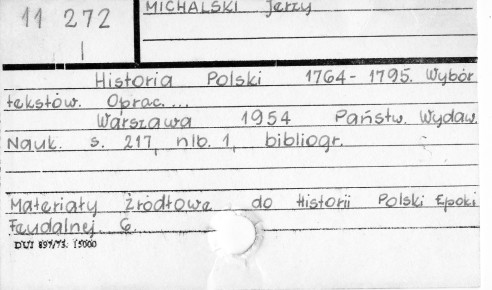 11 272
I
MICHALSKI Jerzy
Historia Polski 1764-1795. Wybór
tekstów. Oprac...
Warszawa 1954 Państw. Wydaw.
Nauk. s. 217, nlb. 1, bibliogr.
Materiały źródłowe do Historii Polski Epoki
Feudalnej 6.
DUI 897/73. 15000